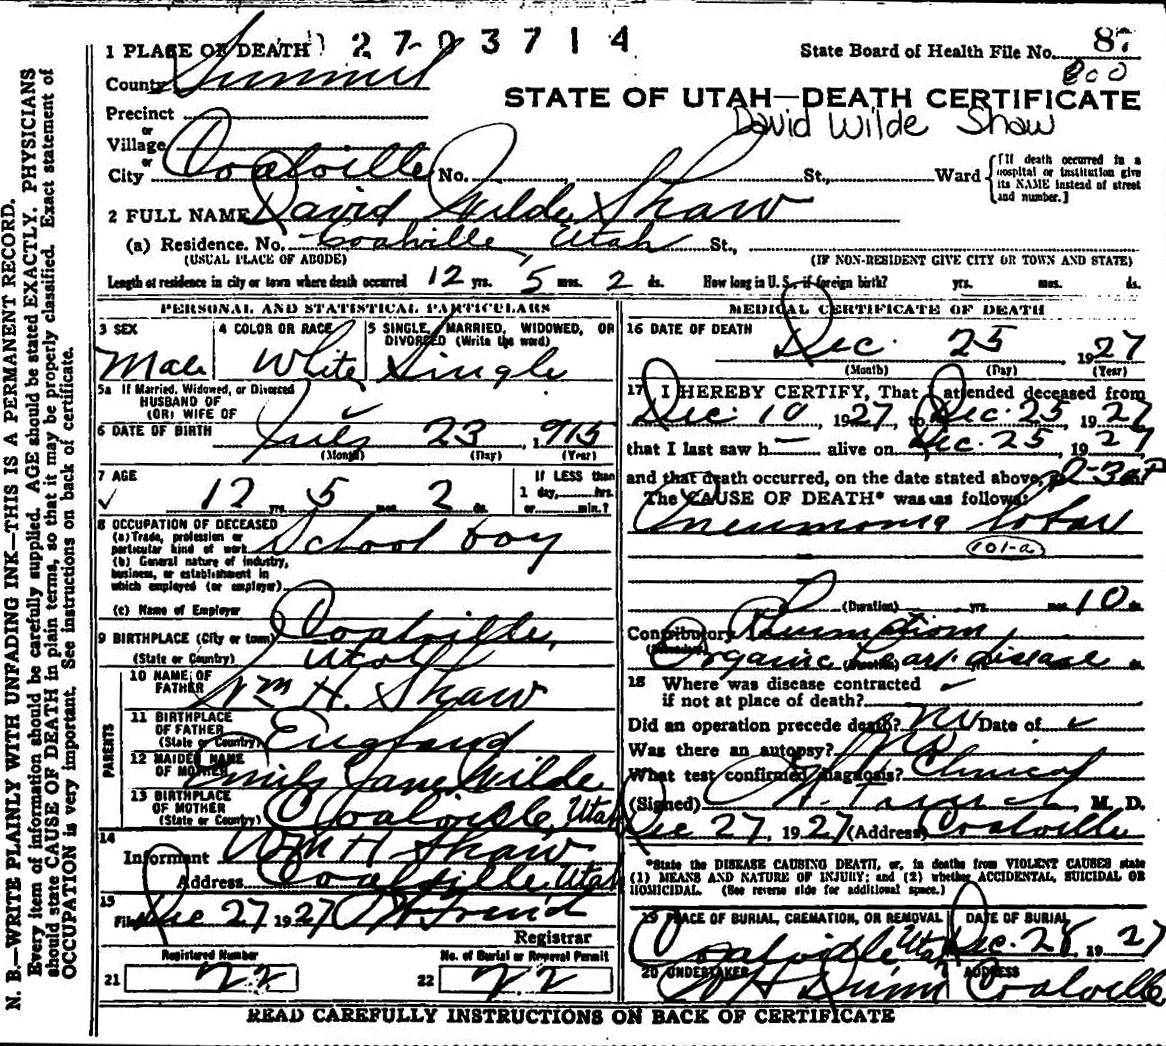 1 PLACE OF DEATH 2703714
State Board of Health File No. 87
County Summit
800
STATE OF UTAH—DEATH CERTIFICATE
Precinct
David Wilde Shaw
or
Village
or
City Coalville No. St., Ward
[If death occurred in a
hospital or institution give
its NAME instead of street
and number.]
2 FULL NAME David Wilde Shaw
(a) Residence. No. Coalville, Utah St.,
(USUAL PLACE OF ABODE) (IF NON-RESIDENT GIVE CITY OR TOWN AND STATE)
Length of residence in city or town where death occurred 12 yrs. 5 mos. 2 ds. How long in U. S., if foreign birth? yrs. mos. ds.
PERSONAL AND STATISTICAL PARTICULARS
3 SEX 4 COLOR OR RACE 5 SINGLE, MARRIED, WIDOWED, OR
DIVORCED (Write the word)
Male White Single
5a If Married, Widowed, or Divorced
HUSBAND OF
(OR) WIFE OF
6 DATE OF BIRTH July 23 1915
(Month) (Day) (Year)
7 AGE If LESS than
12 yrs. 5 mos. 2 ds. 1 day, hrs.
or min.?
8 OCCUPATION OF DECEASED
(a) Trade, profession or
particular kind of work School boy
(b) General nature of industry,
business, or establishment in
which employed (or employer)
(c) Name of Employer
9 BIRTHPLACE (City or town) Coalville,
(State or Country) Utah
PARENTS
10 NAME OF
FATHER Wm H. Shaw
11 BIRTHPLACE
OF FATHER
(State or Country) England
12 MAIDEN NAME
OF MOTHER Emily Jane Wilde
13 BIRTHPLACE
OF MOTHER
(State or Country) Coalville, Utah
14
Informant Wm H Shaw
Address Coalville, Utah
15
Filed Dec 27 1927
Registrar
Registered Number No. of Burial or Removal Permit
21 22 22 22
MEDICAL CERTIFICATE OF DEATH
16 DATE OF DEATH
Dec. 25 1927
(Month) (Day) (Year)
17 I HEREBY CERTIFY, That I attended deceased from
Dec. 10, 1927, to Dec. 25, 1927
that I last saw h— alive on Dec. 25, 1927
and that death occurred, on the date stated above,
The CAUSE OF DEATH* was as follows:
Pneumonia lobar
101-a
(Duration) yrs. mos. 10 ds.
Contributory
Organic Heart disease
18 Where was disease contracted
if not at place of death?
Did an operation precede death? No Date of
Was there an autopsy? No
What test confirmed diagnosis? Clinical
(Signed) M. D.
Dec 27, 1927 (Address) Coalville
*State the DISEASE CAUSING DEATH, or, in deaths from VIOLENT CAUSES state
(1) MEANS AND NATURE OF INJURY; and (2) whether ACCIDENTAL, SUICIDAL OR
HOMICIDAL. (See reverse side for additional space.)
19 PLACE OF BURIAL, CREMATION, OR REMOVAL DATE OF BURIAL
Coalville Utah Dec. 28 1927
20 UNDERTAKER ADDRESS
W H Dunn Coalville
READ CAREFULLY INSTRUCTIONS ON BACK OF CERTIFICATE
N. B.—WRITE PLAINLY WITH UNFADING INK—THIS IS A PERMANENT RECORD.
Every item of information should be carefully supplied. AGE should be stated EXACTLY. PHYSICIANS
should state CAUSE OF DEATH in plain terms, so that it may be properly classified. Exact statement of
OCCUPATION is very important. See instructions on back of certificate.